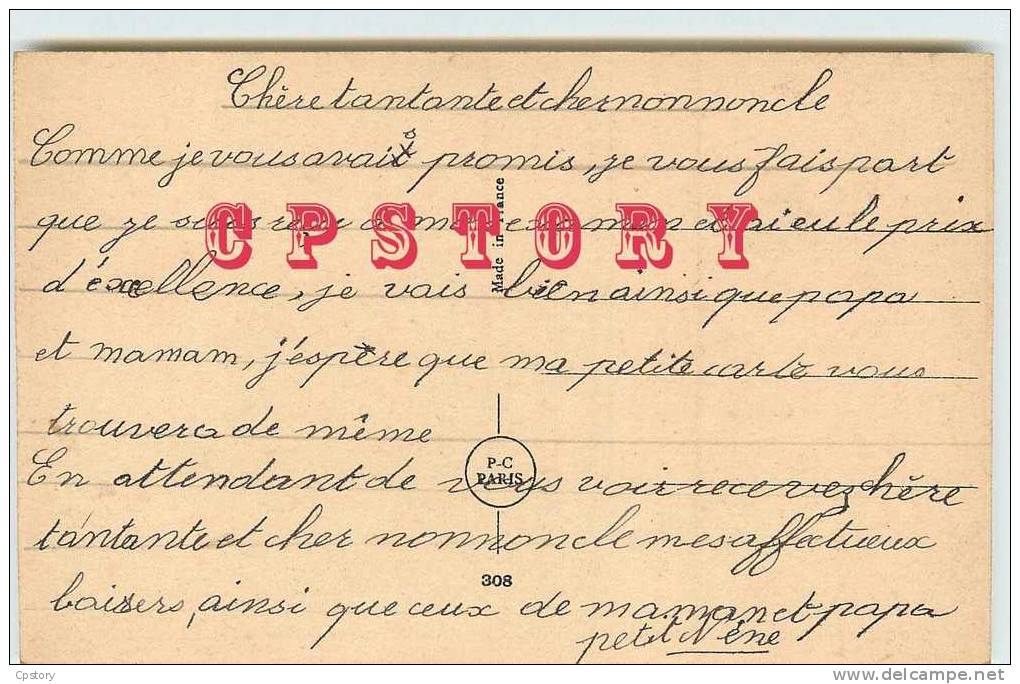 Chère tantante et cher nonnoncle
Comme je vous avais promis, je vous fais part
que je suis reçu a mon examen et ai eu le prix
CPSTORY
Made in France
d'éxellence, je vais bien ainsi que papa
et mamam, j'éspère que ma petite carte vous
trouvera de même
P-C
PARIS
En attendant de vous voir recevez chère
tantante et cher nonnoncle mes affectueux
308
baisers, ainsi que ceux de maman et papa
petit Néne
Cpstory
www.delcampe.net